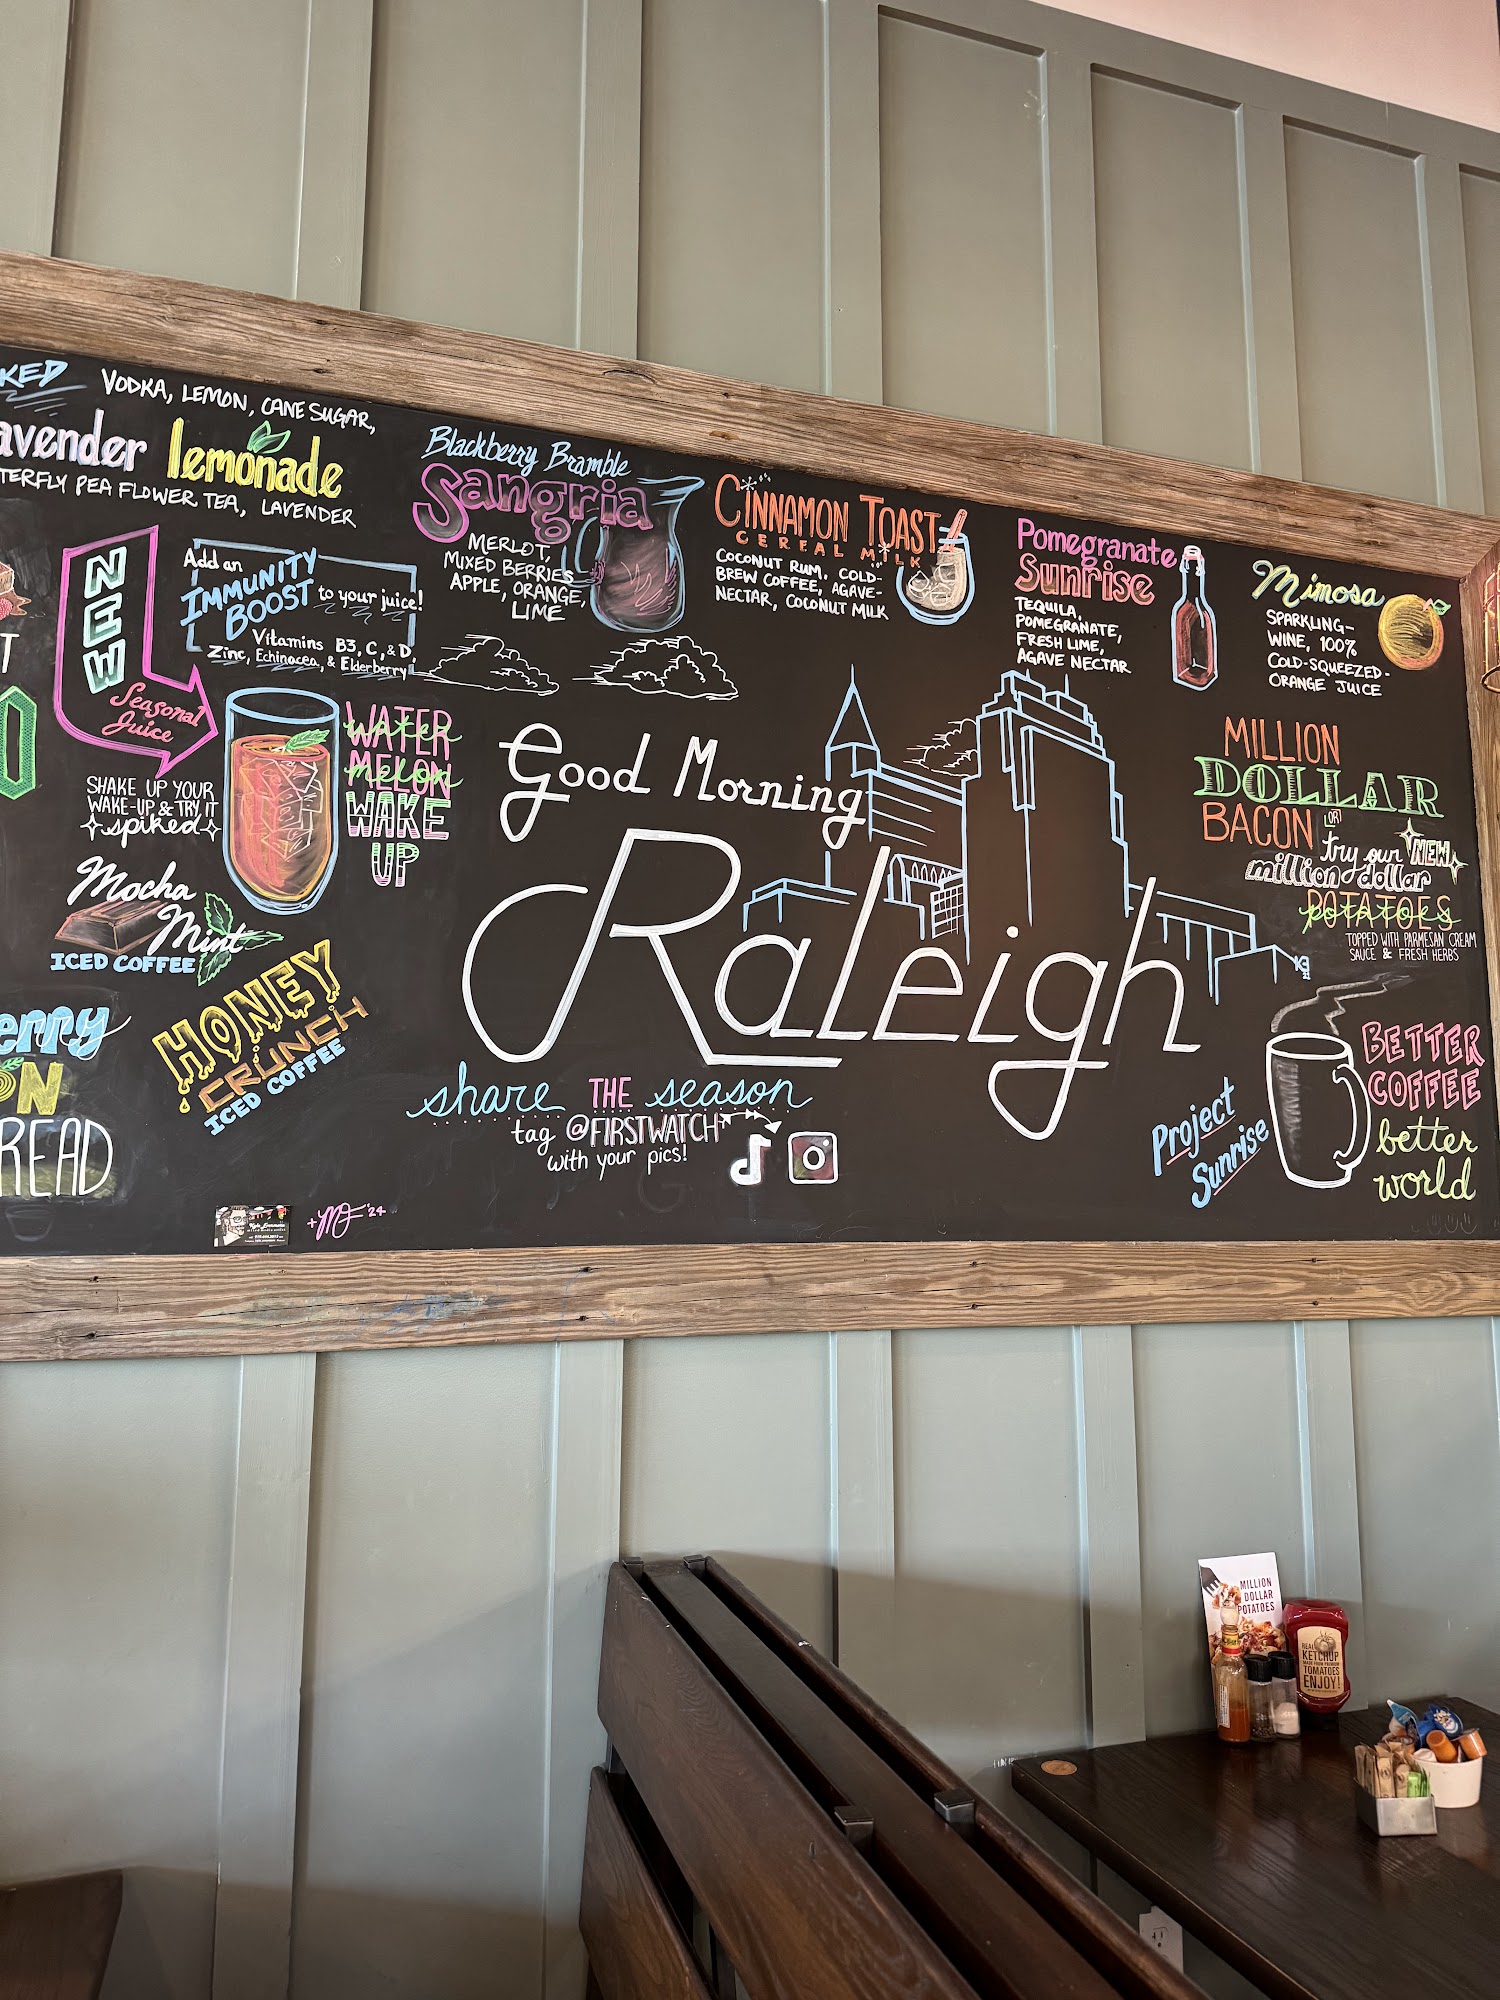 VODKA, LEMON, CANE SUGAR,
lemonade
PEA FLOWER TEA, LAVENDER
NEW
Seasonal
Juice
Add an
IMMUNITY
BOOST to your juice!
Vitamins B3, C, & D,
Zinc, Echinacea, & Elderberry!
SHAKE UP YOUR
WAKE-UP & TRY IT
spiked
WATER
water
MELON
melon
WAKE
UP
Mocha
Mint
ICED COFFEE
HONEY
CRUNCH
ICED COFFEE
Blackberry Bramble
Sangria
MERLOT,
MIXED BERRIES,
APPLE, ORANGE,
LIME
CINNAMON TOAST
CEREAL MILK
COCONUT RUM, COLD-
BREW COFFEE, AGAVE-
NECTAR, COCONUT MILK
Pomegranate
Sunrise
TEQUILA,
POMEGRANATE,
FRESH LIME,
AGAVE NECTAR
Mimosa
SPARKLING-
WINE, 100%
COLD-SQUEEZED-
ORANGE JUICE
Good Morning
Raleigh
MILLION
DOLLAR
BACON OR
try our NEW
million dollar
POTATOES
potatoes
TOPPED WITH PARMESAN CREAM
SAUCE & FRESH HERBS
share THE season
tag @FIRSTWATCH
with your pics!
Project
Sunrise
BETTER
COFFEE
better
world
'24
MILLION
DOLLAR
POTATOES
REAL
KETCHUP
MADE FROM PREMIUM
TOMATOES
ENJOY!